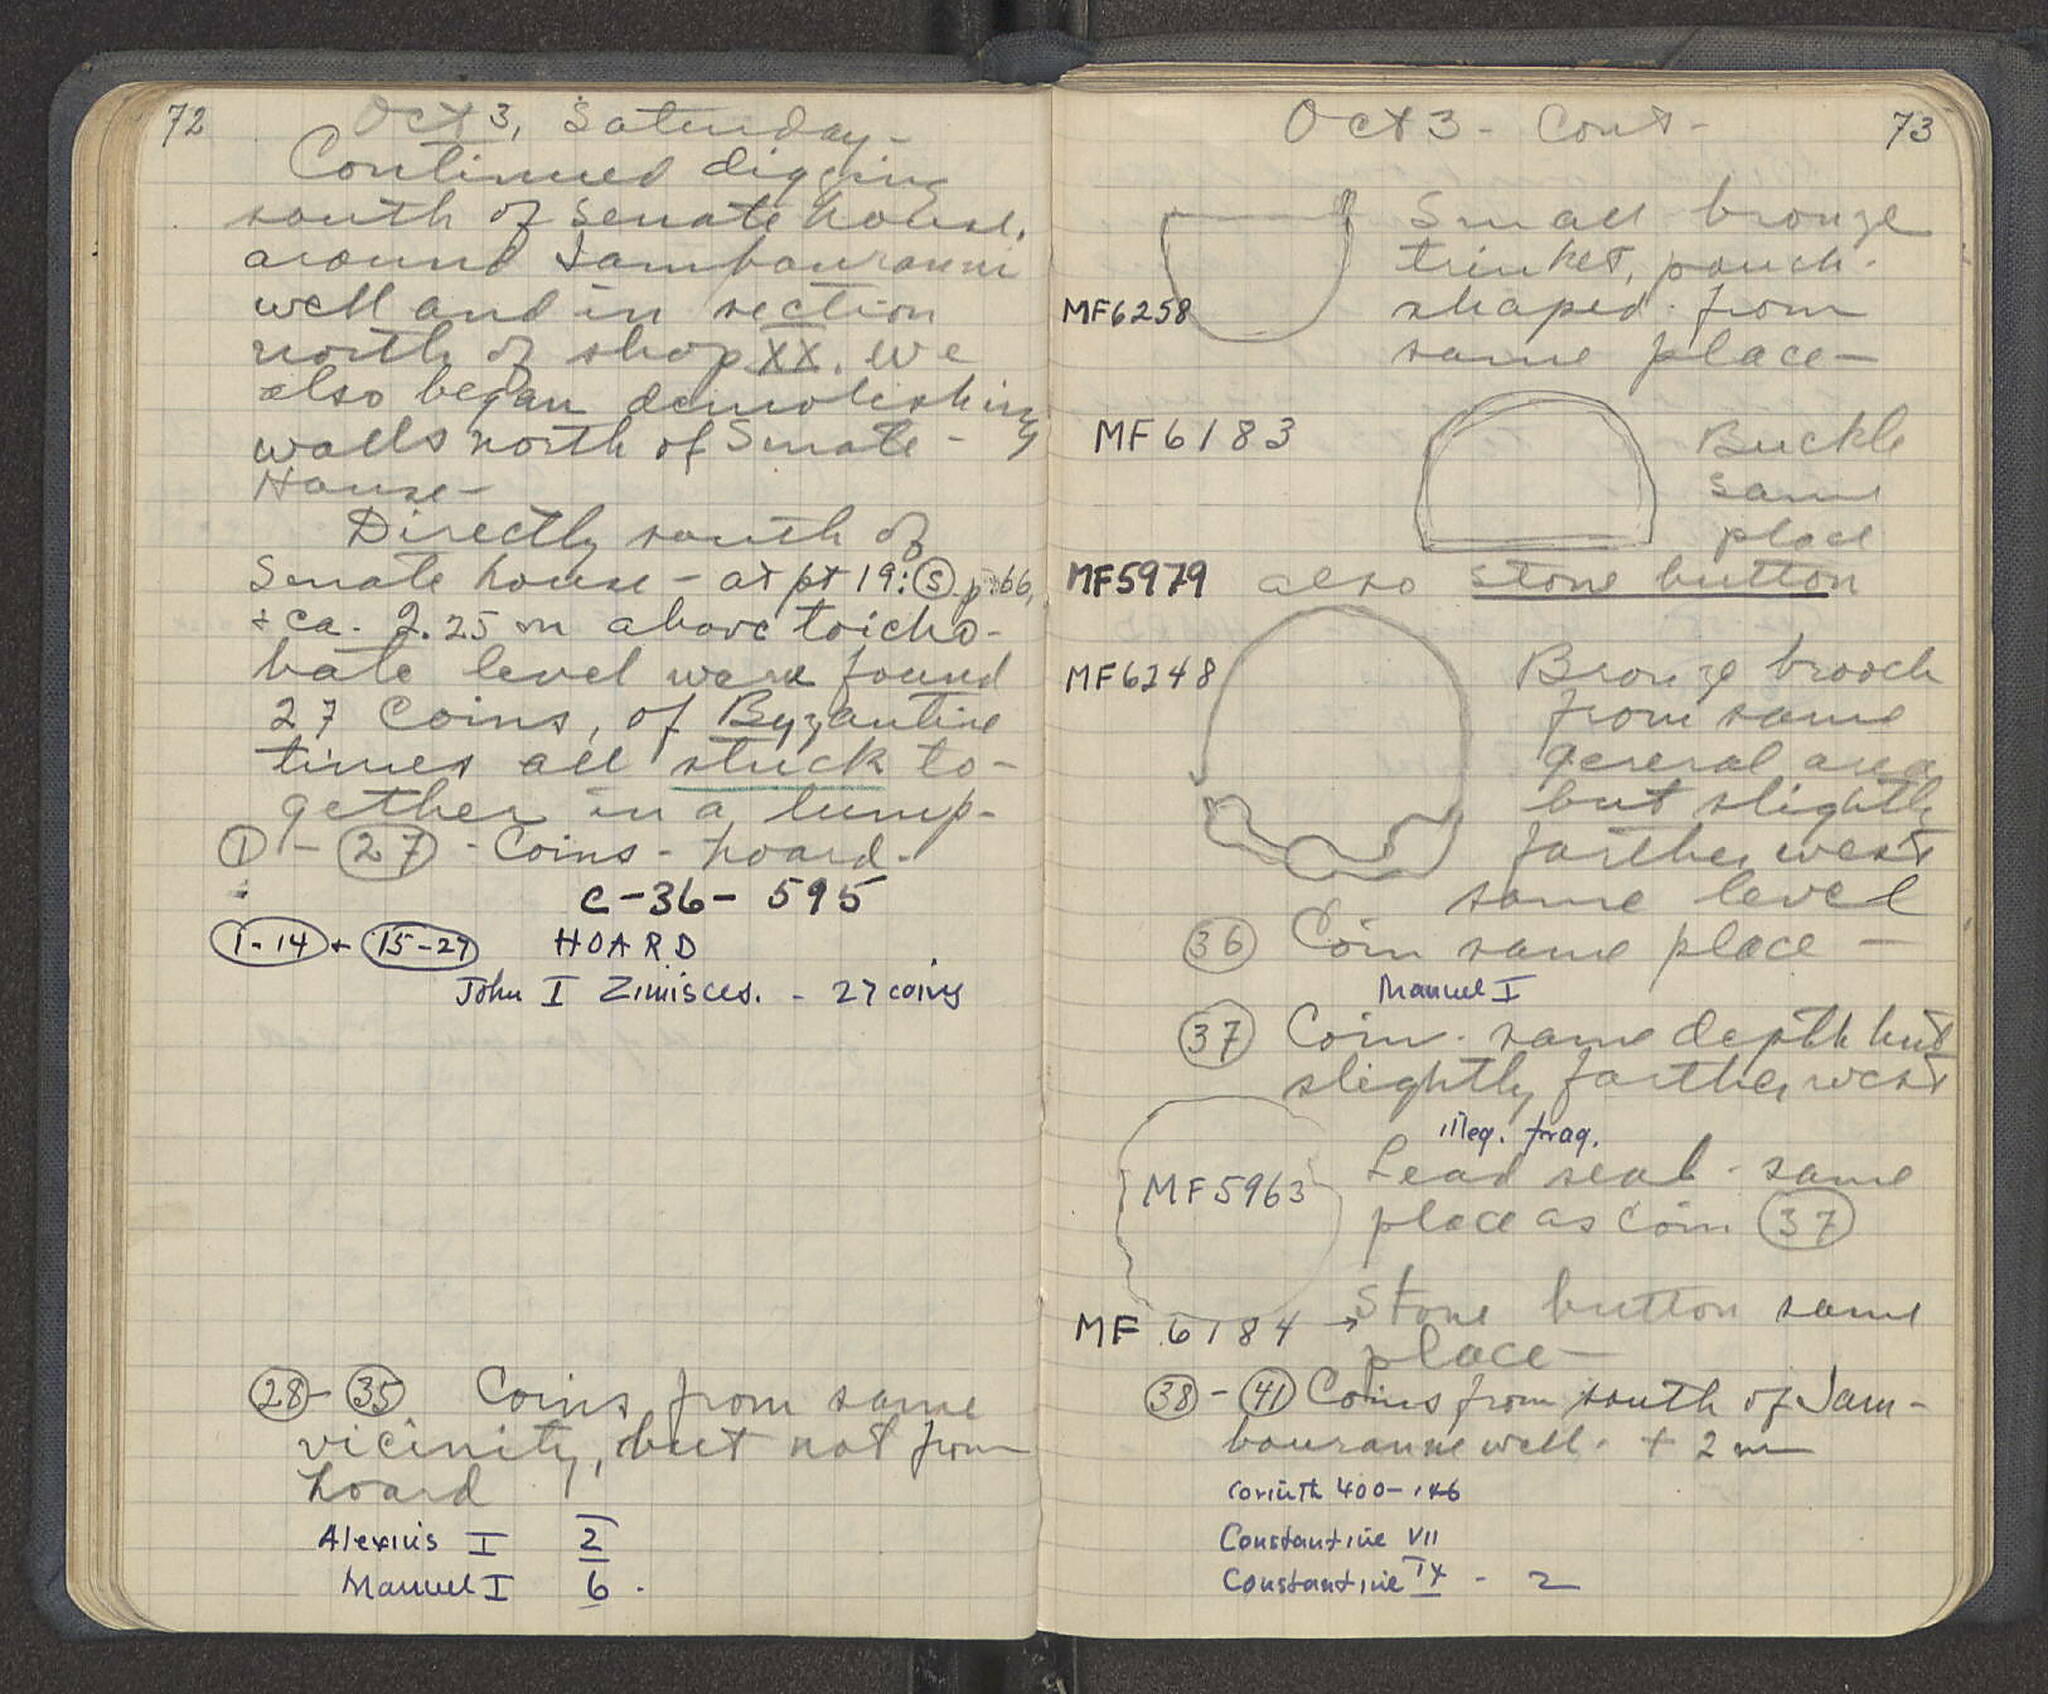 72
Oct 3, Saturday -
Continued digging
south of Senate house,
around Jambouranni
well and in section
north of shop XX. We
also began demolishing
walls north of Senate -
House -
Directly south of
Senate house - at pt 19: S p. 66,
+ ca. 2.25 m above toicho-
bate level were found
27 Coins, of Byzantine
times all stuck to-
gether in a lump -
1 - 27 - Coins - hoard -
C-36- 595
1-14 + 15-27 HOARD
John I Zimisces. - 27 coins
28 - 35 Coins from same
vicinity, but not from
hoard
Alexius I 2
Manuel I 6 .
Oct 3 - Cont - 73
Small bronze
trinket, pouch-
shaped. from
MF6258
same place -
MF6183
Buckle
same
place
MF5979 also stone button
MF6248
Bronze brooch
from same
general area
but slightly
farther west
same level
36 Coin same place -
Manuel I
37 Coin - same depth but
slightly farther west
illeg. frag.
MF5963
Lead seal - same
place as coin 37
MF 6184 → Stone button same
place -
38 - 41 Coins from south of Jam-
bouranne well. + 2 m
Corinth 400-146
Constantine VII
Constantine IX - 2